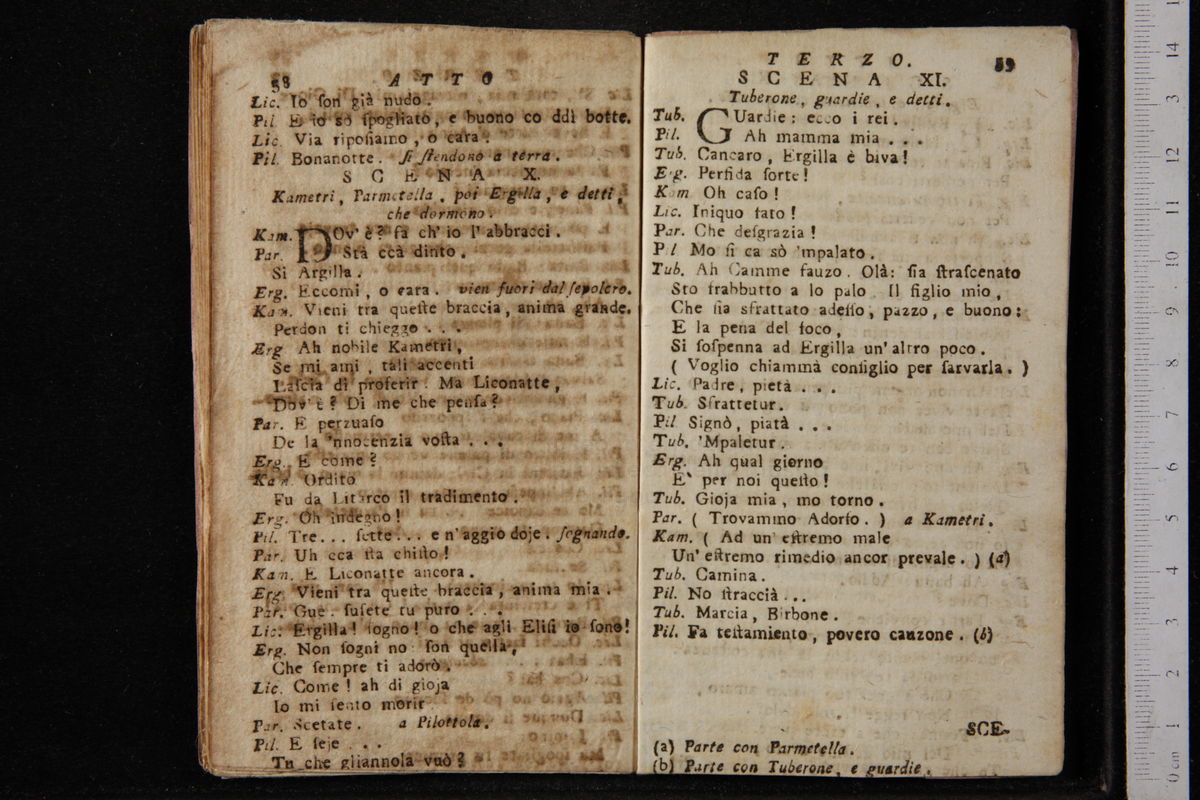 58 ATTO
Lic. Io ſon già nudo.
Pil. E io sò ſpogliato, e buono co ddì botte.
Lic. Via ripoſiamo, o cara.
Pil. Bonanotte. ſi ſtendono a terra.
SCENA X.
Kametri, Parmetella, poi Ergilla, e detti,
che dormono.
Kam. DOv' è? fa ch' io l' abbracci.
Par. Stà ccà dinto.
Si Argilla.
Erg. Eccomi, o cara. vien fuori dal ſepolcro.
Kam. Vieni tra queſte braccia, anima grande.
Perdon ti chieggo . . .
Erg Ah nobile Kametri,
Se mi ami, tali accenti
Laſcia di proferir. Ma Liconatte,
Dov' è? Di me che penſa?
Par. E perzuaſo
De la 'nnocenzia voſta . . .
Erg. E come?
Kam. Ordito
Fu da Litarco il tradimento.
Erg. Oh indegno!
Pil. Tre... ſette... e n' aggio doje. ſognando.
Par. Uh cca ſta chiſto!
Kam. E Liconatte ancora.
Erg. Vieni tra queſte braccia, anima mia.
Par. Gue. ſuſete tu puro . . .
Lic. Ergilla! ſogno! o che agli Eliſi io ſono!
Erg. Non ſogni no: ſon quella,
Che ſempre ti adorò.
Lic. Come! ah di gioja
Io mi ſento morir
Par. Scetate. a Pilottola.
Pil. E ſeje . . .
Tu che gliannola vuò?
TERZO. 59
SCENA XI.
Tuberone, guardie, e detti.
Tub. GUardie: ecco i rei.
Pil. Ah mamma mia . . .
Tub. Cancaro, Ergilla è biva!
Erg. Perfida ſorte!
Kam Oh caſo!
Lic. Iniquo fato!
Par. Che deſgrazia!
Pil Mo ſi ca sò 'mpalato.
Tub. Ah Camme fauzo. Olà: ſia ſtraſcenato
Sto frabbutto a lo palo. Il figlio mio,
Che ſia sfrattato adeſſo, pazzo, e buono:
E la pena del foco,
Si ſoſpenna ad Ergilla un' altro poco.
( Voglio chiammà conſiglio per ſarvarla. )
Lic. Padre, pietà . . .
Tub. Sfrattetur.
Pil Signò, piatà . . .
Tub. 'Mpaletur.
Erg. Ah qual giorno
E' per noi queſto!
Tub. Gioja mia, mo torno.
Par. ( Trovammo Adorſo. ) a Kametri.
Kam. ( Ad un' eſtremo male
Un' eſtremo rimedio ancor prevale. ) (a)
Tub. Camina.
Pil. No ſtraccià...
Tub. Marcia, Birbone.
Pil. Fa teſtamiento, povero cauzone. (b)
SCE-
(a) Parte con Parmetella.
(b) Parte con Tuberone, e guardie.
0 cm 1 2 3 4 5 6 7 8 9 10 11 12 13 14